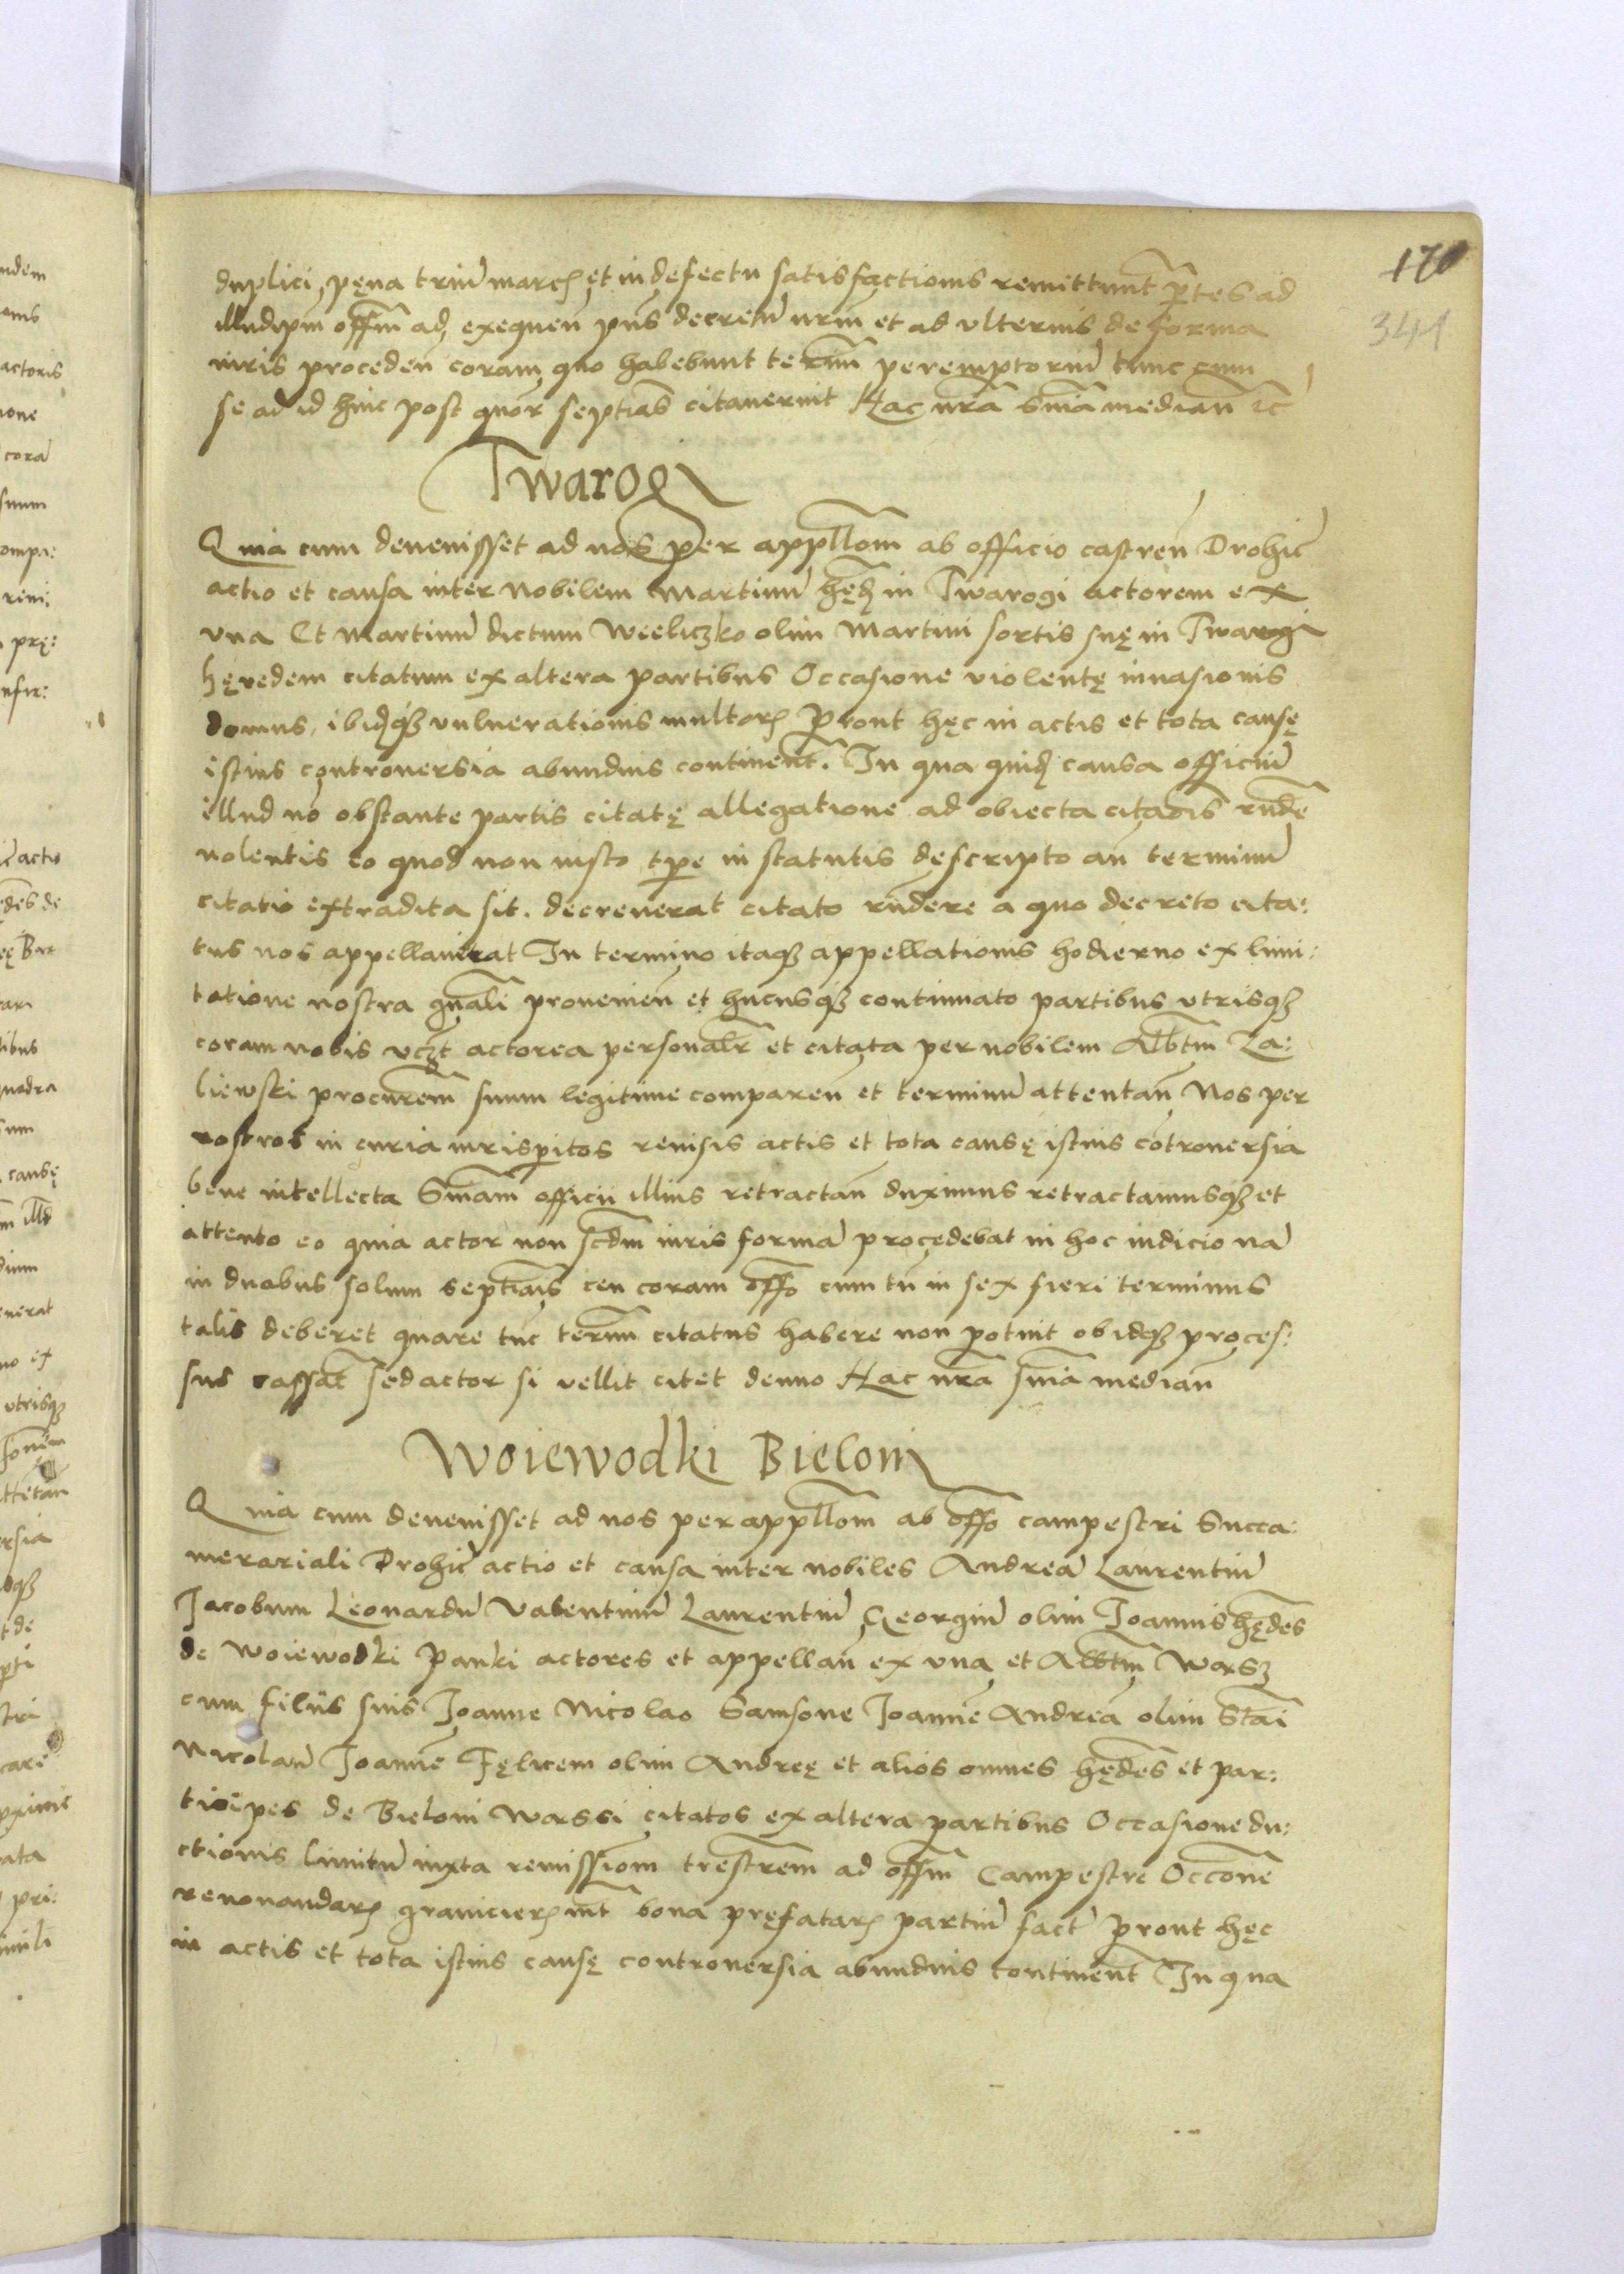 170
341
duplici pęna triū marcꝝ et in defectu satisfactionis remittunt͂ ptes ad
illudipm offm̄ ad exequen̄ pn̄s decretū nrm̄ et ad vlterius de forma
iuris proceden̄ coram quo habebunt termi͞n peremptoriū tunc cum
se ad id hinc post quor septia͞s citauerint Hac nrā sn̄ia median̄ ꝛc̄
Twarogi
Quia cum deuenisset ad nos per appllom̄ ab officio castren̄ Drohic̄
actio et causa inter Nobilem Martinū hęḍ in Twarogi actorem ex
vna Et Martinū dictum Weeliczko olim Martini sortis suę in Twarogi
hęredem citatum ex altera partibus Occasione violentę inuasionis
domus, ibidqꝫ vulnerationis multorꝝ Prout hęc in actis et tota causę
istius controuersia abundius continent͂. In qua quid̨ causa officiū
illud nō obstante partis citatę allegatione ad obiecta citaōis rn̄de͞
nolentis eo quod non iusto tp̄e in statutis descripto an̄ terminū
citatio extradita sit. decreuerat citato rn̄dere a quo decreto cita:
tus nos appellauerat In termino itaqꝫ appellationis hodierno ex limi:
tatione nostra gn̄ali prouenien̄ et hucusqꝫ continuato partibus vtrisqꝫ
coram nobis vcꝫt actorea personalr̄ et citata per nobilem Albtm̄ Za:
liewski procurem̄ suum legitime comparen̄ et terminū attentan̄ Nos per
nostros in curia iurisp̄itos reuisis actis et tota causę istius cōtrouersia
bene intellecta Sn̄iam officii illius retractan̄ duximus retractamusqꝫ et
attento eo quia actor non scdm̄ iuris formā procedebat in hoc iudicio nā
in duobus solum septīais ceu coram offo͞ cum tn̄ in sex fieri terminus
talis deberet quare tūc termi͞n citatus habere non potuit ob idqꝫ proces:
sus cassat͂ sed actor si vellit citet denuo Hac nrā sn̄ia median̄
Woiewodki Bieloni
Quia cum deuenisset ad nos per appllom̄ ab offo͞ campestri Succa:
merariali Drohic̄ actio et causa inter nobiles Andreā Laurentiū
Jacobum Leonardū Valentinū Laurentiū Georgiū olim Joannis hęde͞s
de Woiewodki Panki actores et appellan̄ ex vna et Albtm̄ Wasz
cum filiis suis Joanne Nicolao Samsone Joannē Andreā olim Stāi
Nicolaū Joannē Fęlicem olim Andreę et alios omnes hęde͞s et par:
ticipes de Bieloni Wassi citatos ex altera partibus Occasione du:
ctionis limitū iuxta remissiom̄ trestrem̄ ad offm̄ Campestre Occōne
renouandarꝝ granicierꝝ int͞ bona pręfatarꝝ partiū fact̄ prout hęc
in actis et tota istius causę controuersia abundius continent͂ In qua